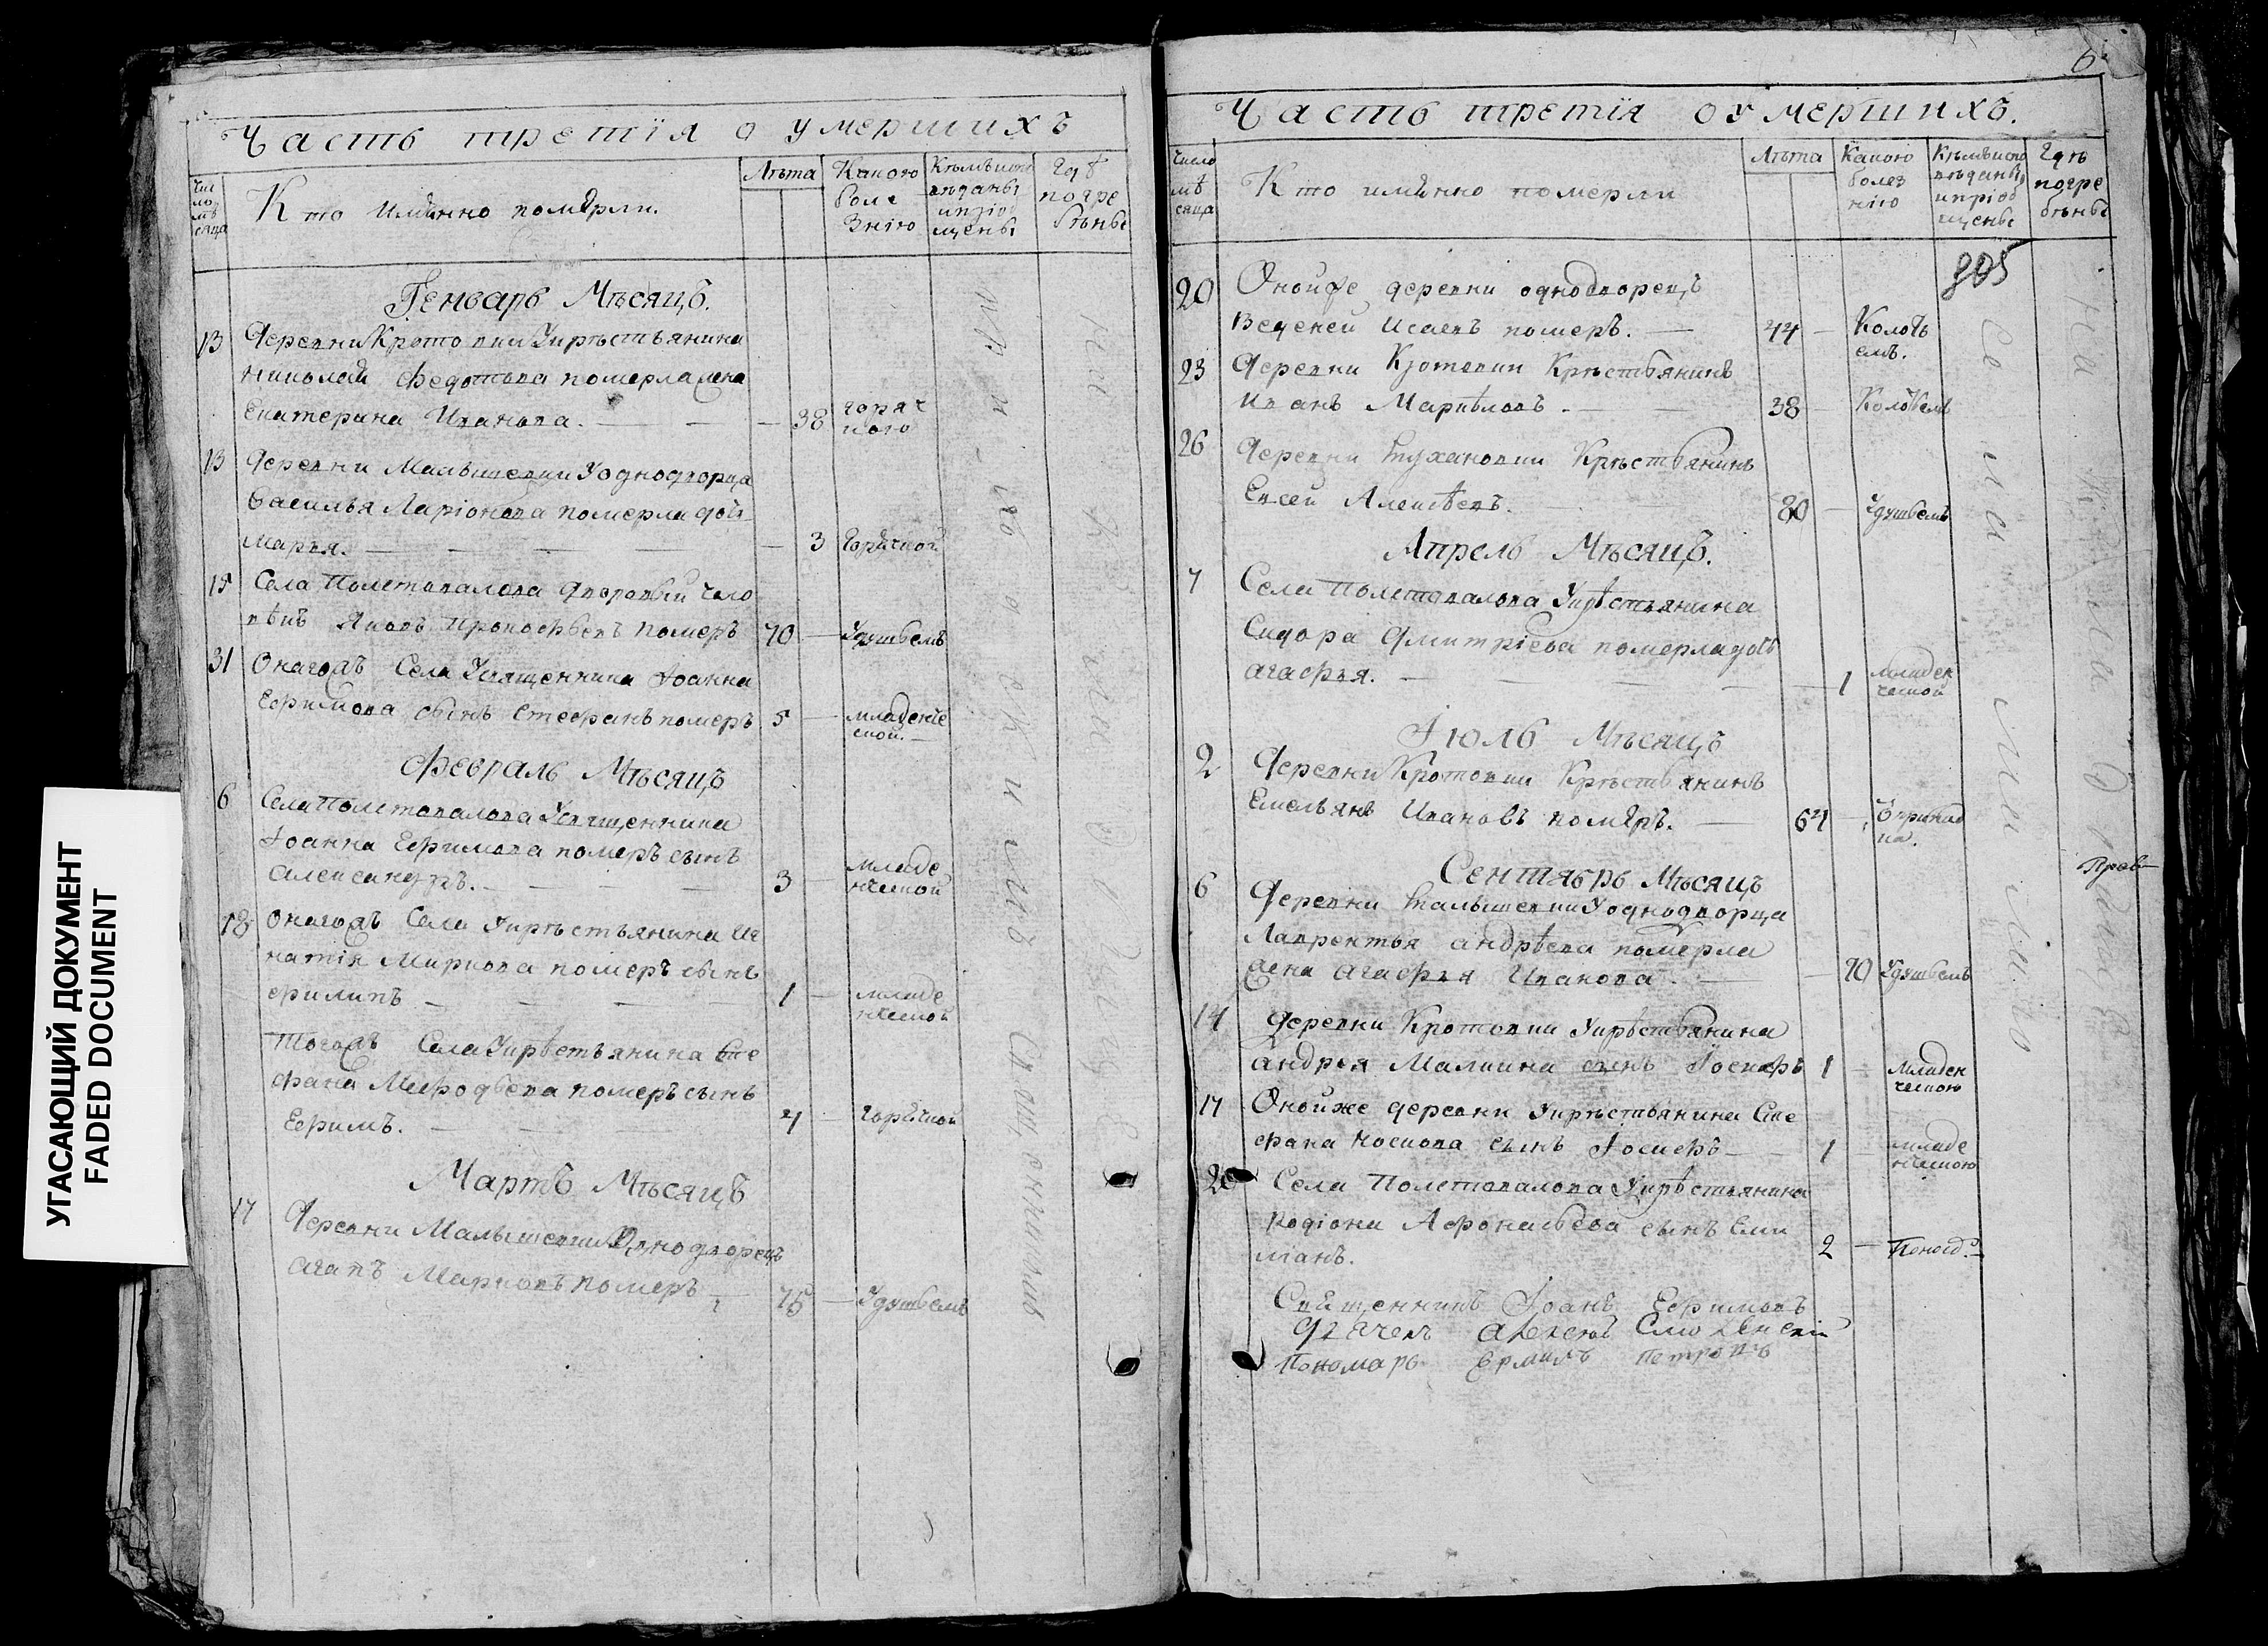 УГАСАЮЩИЙ ДОКУМЕНТ
FADED DOCUMENT
Часть третїя о умершихъ
Число мѣсяца
Кто имянно померли.
Лѣта
Какою болезнію
Кемъ исповѣданы и пріобщены
Гдѣ погребѣны
Генварь Мѣсяцъ.
13
Деревни Кротовки У крѣстьянина
Николая Федотова померла жена
Екатерина Иванова.
38
горячкою
13
Деревни Малышевки У однодворца
Василья Ларіонова померла дочь
Марья.
3
Горячкой
15
Села Полетовалова дворовый чело
вѣкъ Яковъ Прокофьевъ померъ
70
Удушьемъ
31
Онагожъ Села У священника Іоанна
Ефимова сынъ Стефанъ померъ
5
младенческой.
Февраль Мѣсяцъ
6
Села Полетовалова У священника
Іоанна Ефимова померъ сынъ
Александръ.
3
младенческой
18
Онагожъ Села У крѣстьянина Иг
натія Маркова померъ сынъ
филипъ
1
младенческой
Тогожъ Села У крѣстьянина Сте
фана Мефодьева померъ сынъ
Ефимъ.
4
горячкой
Мартъ Мѣсяцъ
17
Деревни Малышевки Однодворецъ
Агапъ Марковъ померъ
75
Удушьемъ
Священникомъ
6
Часть третїя о умершихъ.
Число мѣсяца
Кто имянно померли
Лѣта
Какою болезнію
Кемъ исповѣданы и пріобщены
Гдѣ погребѣны
805
20
Оной же деревни однодворецъ
Веденей Исаевъ померъ.
44
Колотьемъ.
23
Деревни Кротовки Крѣстьянинъ
Иванъ Маркѣловъ
38
Колотьемъ
26
Деревни Тухановки Крѣстьянинъ
Евсей Алексѣевъ.
80
Удушьемъ
Апрель Мѣсяцъ.
7
Села Полетовалова У крѣстьянина
Сидора Дмитріева померла дочь
Агафья.
1
младенческой
Іюль Мѣсяцъ
2
Деревни Кротовки Крѣстьянинъ
Емельянъ Ивановъ помяръ.
64
Сентябрь Мѣсяцъ
6
Деревни Малышевки У однодворца
Лаврентья Андрѣева померла
жена Агафья Иванова.
70
Удушьемъ
14
Деревни Кротовки У крѣстьянина
Андрея Малкина сынъ Іосифъ
1
младенческою
17
Оной же деревни У крѣстьянина Сте
фана Носкова сынъ Іосифъ
1
младенческою
20
Села Полетовалова У крѣстьянина
Родіона Афонасьева сынъ Еми
ліанъ.
2
На Кладбище
Священникъ Іоанъ Ефимовъ
Дьячекъ Алексѣй Смоленскій
Пономарь Ермилъ Петровъ